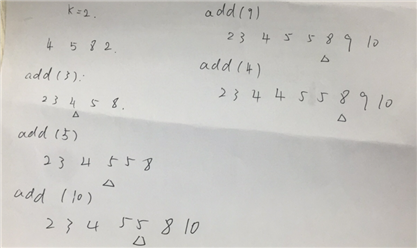 k=2.
4 5 8 2.
add(3):
2 3 4 5 8.
add(5)
2 3 4 5 5 8
add (10)
2 3 4 5 5 8 10
add(9)
2 3 4 5 5 8 9 10
add(4)
2 3 4 4 5 5 8 9 10